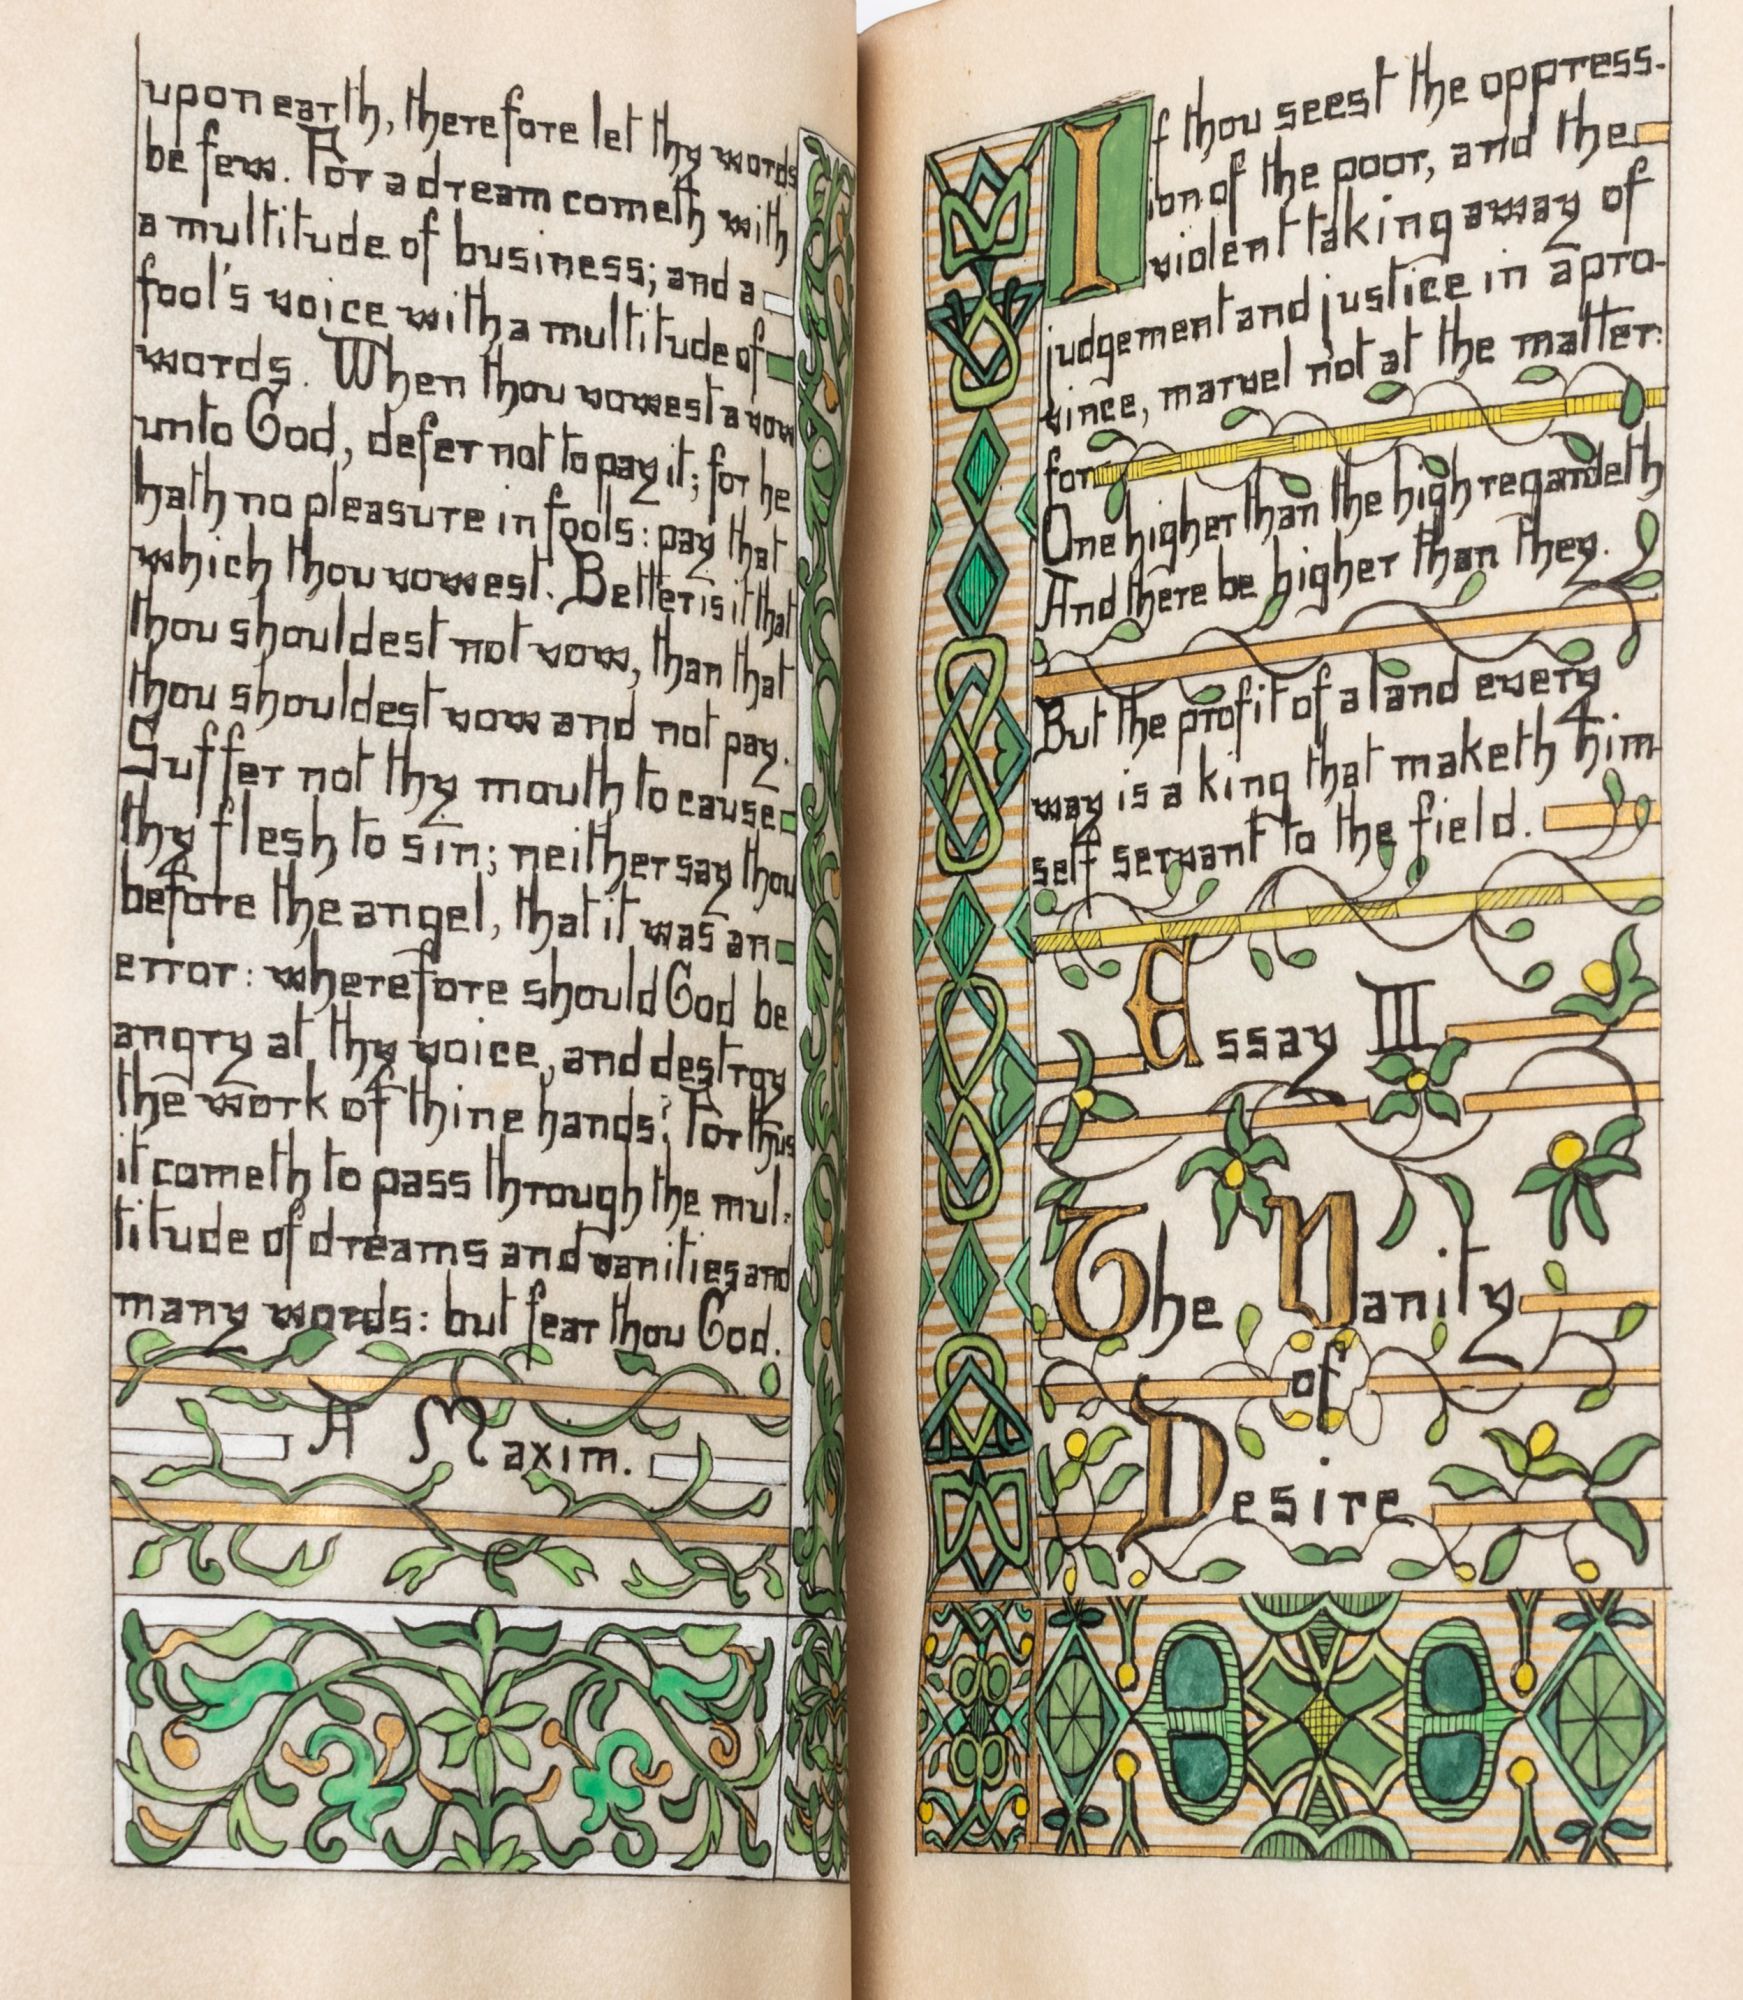 upon earth, therefore let thy words
be few. For a dream cometh with
a multitude of business; and a
fool's voice with a multitude of
words. When thou vowest a vow
unto God, defer not to pay it; for he
hath no pleasure in fools: pay that
which thou vowest. Better is it that
thou shouldest not vow, than that
thou shouldest vow and not pay.
Suffer not thy mouth to cause
thy flesh to sin; neither say thou
before the angel, that it was an
error: wherefore should God be
angry at thy voice, and destroy
the work of thine hands? For thus
it cometh to pass through the mul-
titude of dreams and vanities and
many words: but fear thou God.
A Maxim.
If thou seest the oppress-
ion of the poor, and the
violent taking away of
judgement and justice in a pro-
vince, marvel not at the matter:
for
One higher than the high regardeth
And there be higher than they.
But the profit of a land every
way is a king that maketh him-
self servant to the field.
Essay III
The Vanity
of
Desire